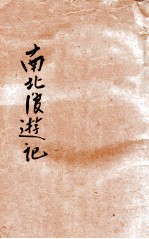 南北漫遊记